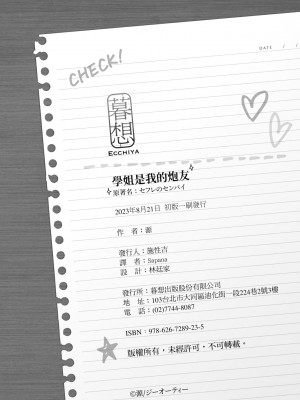 CHECK!
DATE / /
暮想
ECCHIYA
學姐是我的炮友
原著名：セフレのセンパイ
2023年8月21日 初版一刷發行
作 者：源
發行人：施性吉
譯 者：Sapana
設 計：林廷家
發行所：暮想出版股份有限公司
地 址：103台北市大同區迪化街一段224巷2號3樓
電 話：(02)7744-8087
ISBN：978-626-7289-23-5
版權所有，未經許可，不可轉載。
©源/ジーオーティー